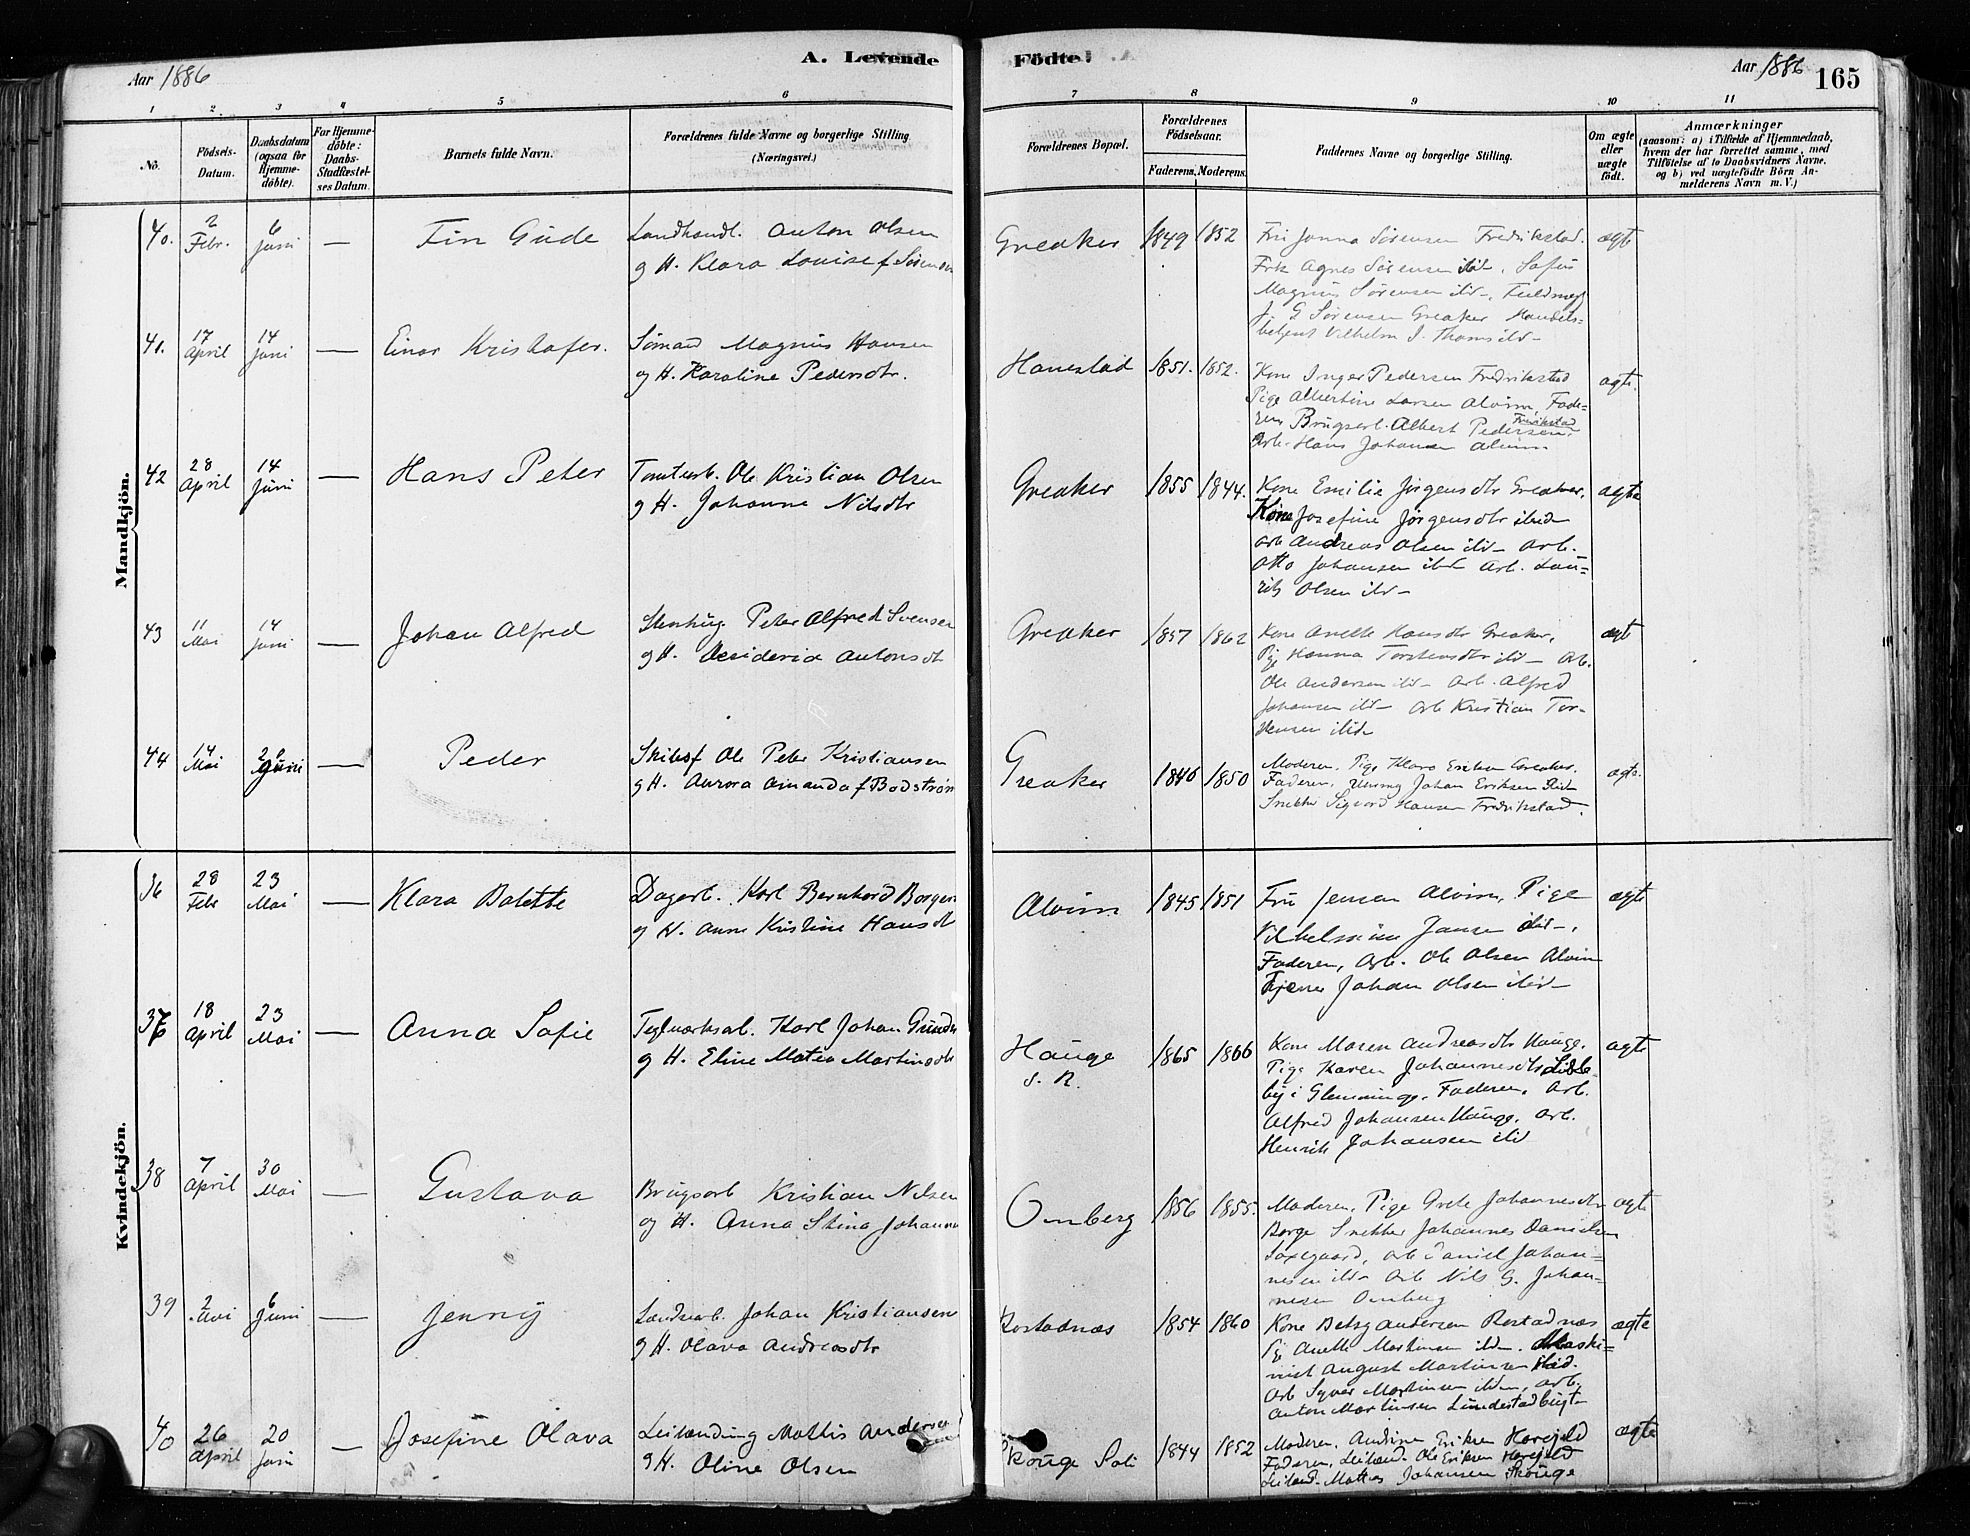 Aar 1886
A. Levende
Födte.
Aar 1886
165
1 2 3 4 5 6 7 8 9 10 11
No.
Födsels-
Datum.
Daabsdatum
(ogsaa for
Hjemme-
döbte).
For Hjemme-
döbte:
Daabs-
Stadfæstel-
ses Datum.
Barnets fulde Navn.
Forældrenes fulde Navne og borgerlige Stilling
(Næringsvei.)
Forældrenes Bopæl.
Forældrenes
Födselsaar.
Faderens. Moderens.
Faddernes Navne og borgerlige Stilling.
Om ægte
eller
uægte
födt.
Anmærkninger
(saasom: a) i Tilfælde af Hjemmedaab,
hvem der har forrettet samme, med
Tilföielse af to Daabsvidners Navne,
og b) ved uægtefödte Börn An-
melderens Navn m. V.)
Mandkjön.
40. 2 Febr. 6 Juni — Fin Gude
Landhandl. Anton Olsen
g H. Klara Louise f Sörensen
Greaker 1849 1852
Frk Agnes Sörensen ibid.
Magnus Sörensen ibid-, Fuldmegt
J. G Sörensen Greaker Handels-
betjent Vilhelm J. Thoms ibid-
ægte
41. 17 April 14 Juni — Einar Kristofer.
Sömand Magnus Hansen
og H. Karoline Pedersdtr.
Hanestad 1851. 1852.
Kone Inger Pedersen Fredrikstad
Pige Albertine Larsen Alvim, Fade-
ren Brugserb. Albert Pedersen, Fredrikstad
Arb. Hans Johansen Alvim
ægte.
42 28 April 14 Juni — Hans Peter
Tomtearb. Ole Kristian Olsen
g H. Johanne Nilsdtr
Greaker 1855 1844.
Kone Emilie Jörgensdtr Greaker,
Kone Josefine Jörgensdtr ibid
Arb Andreas Olsen ibid- Arb.
Otto Johansen ibid Arb. Lau-
rits Olsen ibid-
ægte
43 11 Mai 14 Juni — Johan Alfred
Stenhug. Peter Alfred Svensen
g H. Desideria Antonsdt
Greaker 1857 1862
Kone Anette Hansdtr Greaker,
Pige Hanna Torstensdtr ibid- Arb.
Ole Andersen ibid- Arb. Alfred
Johansen ibid- Arb Kristian Tor-
stensen ibid
ægte
44 14 Mai Juni — Peder
Skibsf Ole Peter Kristiansen
g H. Aurora Amanda f Bodström
Greaker 1846 1850
Moderen, Pige Klara Eriksen Greaker.
Faderen, Johan Eriksen ibid
Snekker Sigvard Hansen Fredrikstad.
ægte.
Kvindekjön.
36 28 Febr 23 Mai — Klara Bolette
Dagarb. Karl Bernhard Borgen
og H. Anne Kristine Hansdt
Alvim 1845 1851
Fru Jensen Alvim, Pige
Vilhelmine Jansen ibid-,
Faderen, Arb. Ole Olsen Alvim
Tjener Johan Olsen ibid-
ægte
37 18 April 23 Mai — Anna Sofie
Teglværksarb. Karl Johan
g H. Eline Matea Martinsdtr
Hauge
S. R.
1865 1866
Kone Maren Andreasdtr Hauge.
Pige Karen Johannesdtr Lisle-
by i Glemminge, Faderen, Arb.
Alfred Johansen Hauge, Arb.
Henrik Johansen ibid
ægte
38 7 April 30 Mai — Gustava
Brugsarb Kristian Nilsen
og H. Anna Stina Johanne
Omberg 1856 1855.
Moderen, Pige Grete Johannesdtr
Borge Snekker Johannes Danielsen
Saxegaard, Arb Daniel Johan-
nesen ibid- Arb Nils G. Johan-
nesen Omberg
ægte
39 2 6 Juni — Jenny
Landsarb. Johan Kristiansen
g H. Olava Andreasdtr
Rostadnæs 1854 1860
Kone Betzy Andersen Rostadnæs
Pg Anette Martinsen ibid-. Maski-
nist August Martinsen ibid.
Arb Syver Martinsen ibid-, Arb.
Anton Martinsen Lundestadbugten
ægte
40 26 April 20 Juni — Josefine Olava
Leilænding Mattis Andersen
g H. Oline Olsen
Skouge Soli 1844 1852
Moderen, Andrine Eriksen Harejeld
Faderen, Leilænd. Ole Eriksen Harejeld
Leilænd Mattias Johansen Skouge
ægte